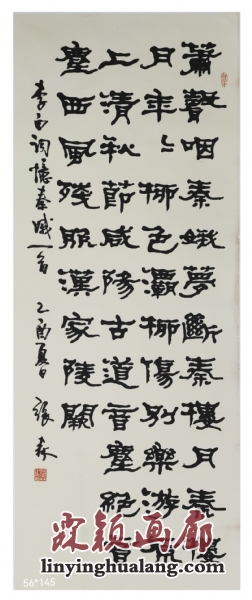 簫聲咽秦娥夢斷秦樓月秦樓
月年〻柳色灞柳傷別樂游原
上清秋節咸陽古道音塵絕音
塵西風殘照漢家陵闕
李白詞憶秦娥一首 乙酉夏日 張森
霖颖画廊
linyinghualang.com
56*145